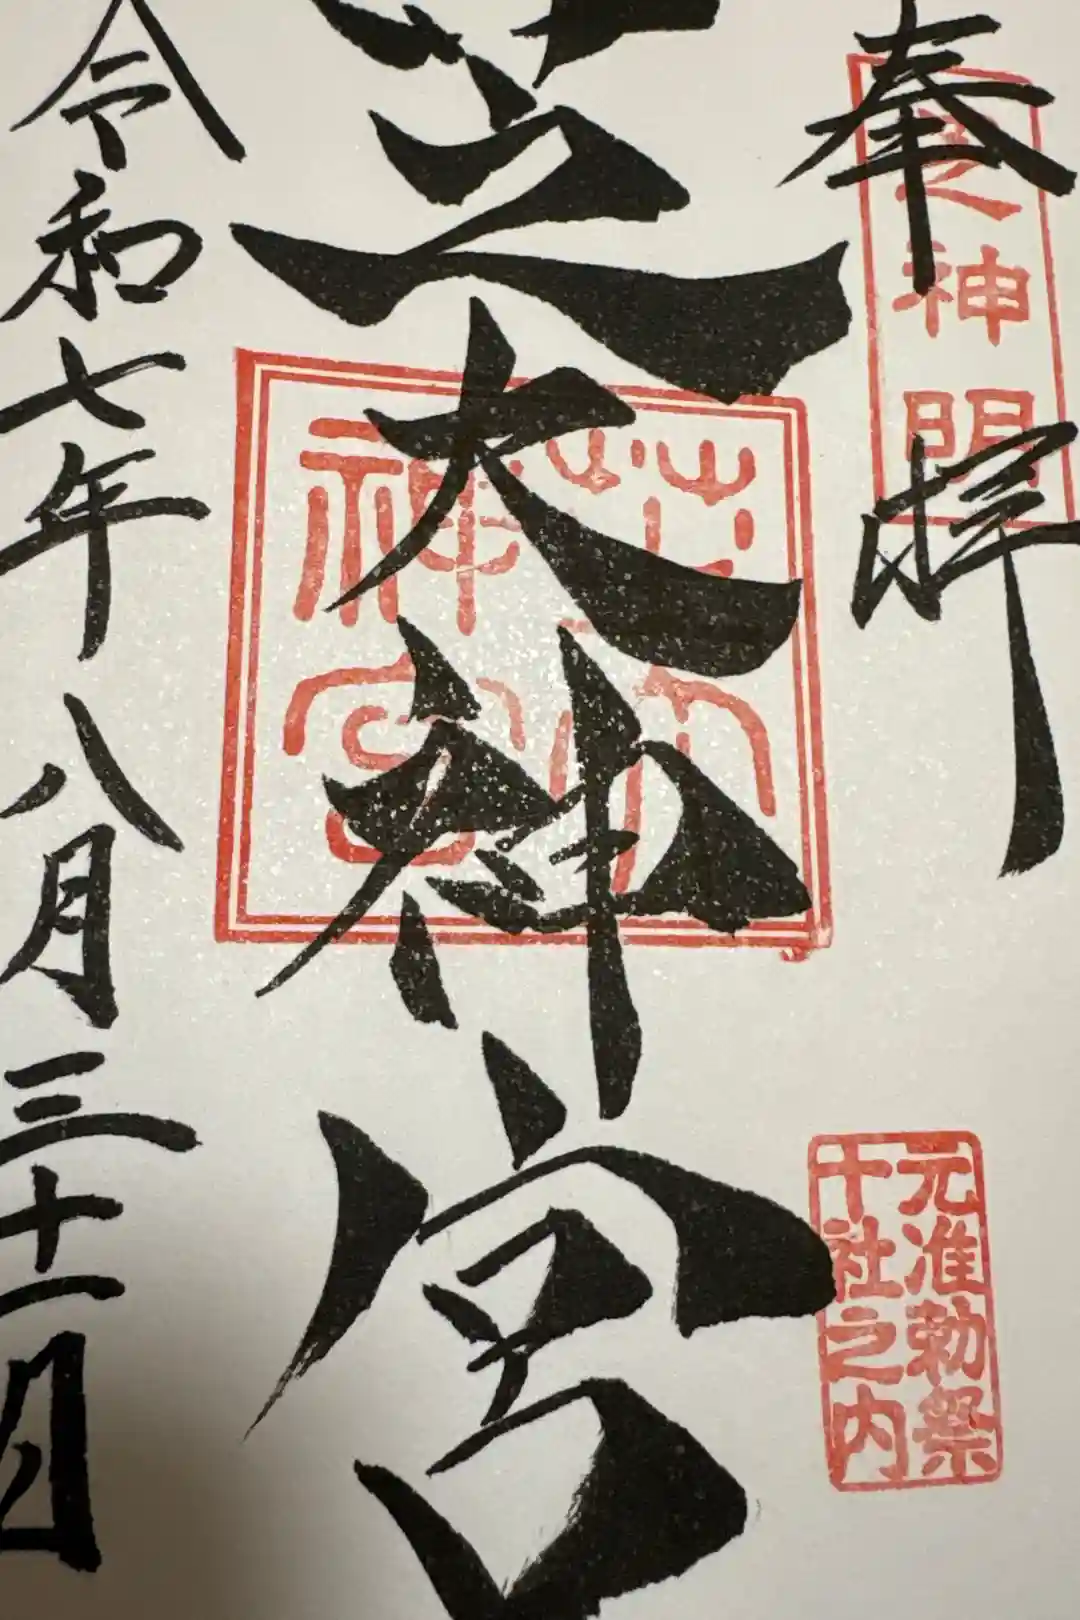 奉拝
芝神明
元准勅祭
十社之内
芝大神宮
芝大
神宮
令和七年八月三十一日